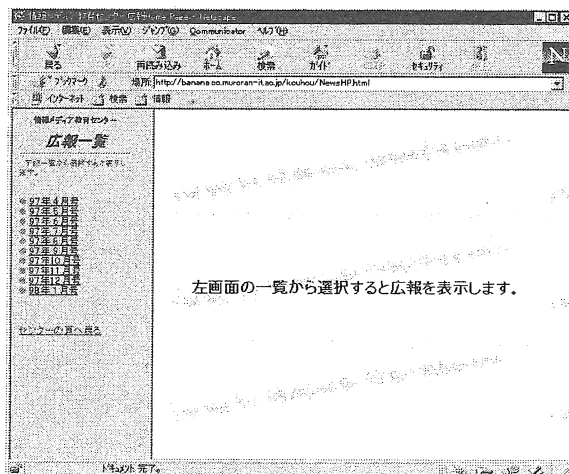 ファイル(F) 編集(E) 表示(V) ジャンプ(G) Communicator ヘルプ(H)
戻る 再読み込み ホーム 検索 ガイド セキュリティ
ブックマーク 場所: http://banana.cc.muroran-it.ac.jp/kouhou/NewsHP.html
インターネット 検索 情報
情報メディア教育センター
広報一覧
下記一覧から選択すると表示し
ます。
97年4月号
97年5月号
97年6月号
97年7月号
97年8月号
97年9月号
97年10月号
97年11月号
97年12月号
98年1月号
左画面の一覧から選択すると広報を表示します。
センターの頁へ戻る
ドキュメント: 完了。